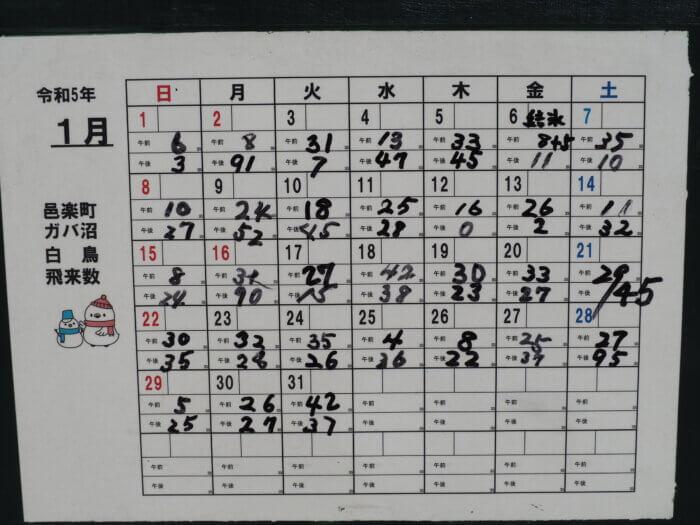 令和5年
1月
邑楽町
ガバ沼
白鳥
飛来数
日 月 火 水 木 金 土
1 2 3 4 5 6 結氷 7
午前 6 午前 8 午前 31 午前 13 午前 33 午前 8+5 午前 35
午後 3 午後 91 午後 7 午後 47 午後 45 午後 11 午後 10
8 9 10 11 12 13 14
午前 10 午前 24 午前 18 午前 25 午前 16 午前 26 午前 11
午後 27 午後 52 午後 45 午後 28 午後 0 午後 2 午後 32
15 16 17 18 19 20 21
午前 8 午前 午前 27 午前 42 午前 30 午前 33 午前 29
午後 24 午後 90 午後 15 午後 38 午後 23 午後 27 午後 145
22 23 24 25 26 27 28
午前 30 午前 32 午前 35 午前 4 午前 8 午前 25 午前 27
午後 35 午後 28 午後 26 午後 26 午後 22 午後 37 午後 95
29 30 31
午前 5 午前 26 午前 42 午前 午前 午前 午前
午後 25 午後 27 午後 37 午後 午後 午後 午後
午前 午前 午前 午前 午前 午前 午前
午後 午後 午後 午後 午後 午後 午後